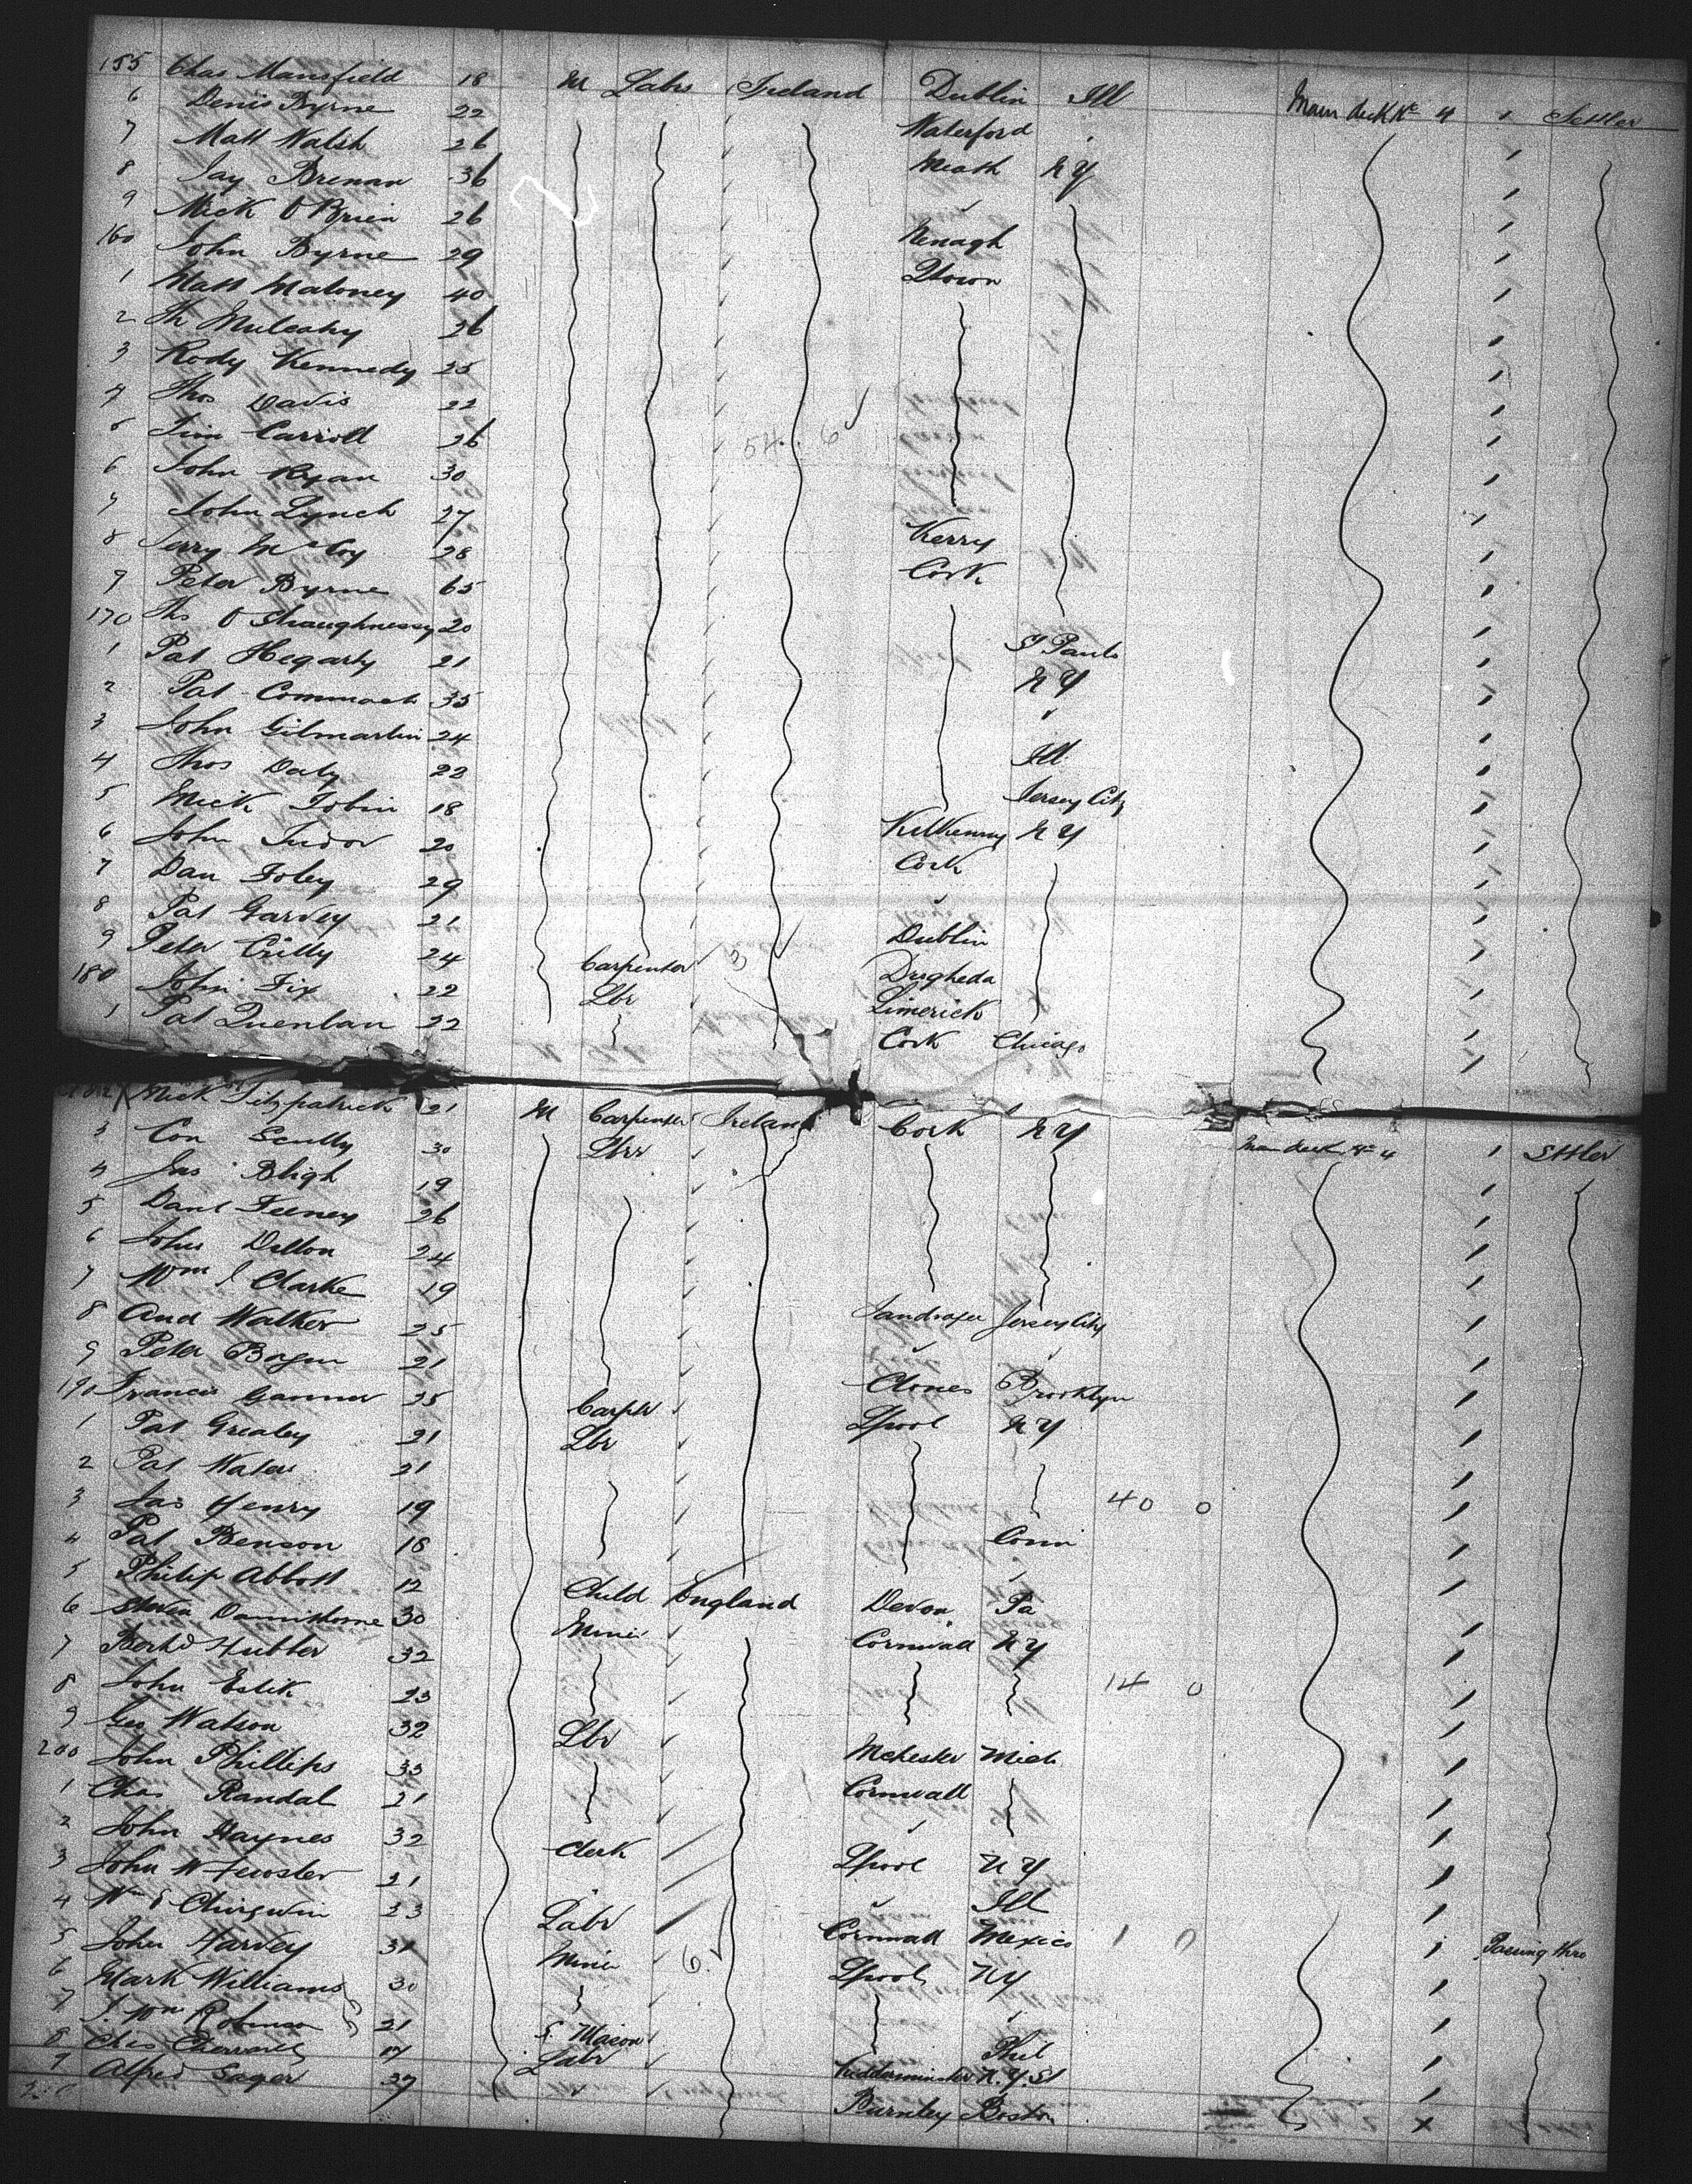 155 Chas Mansfield 18 M Labr Ireland Dublin Ill Main deck No 4 1 Settler
6 Denis Byrne 22 Waterford
7 Matt Walsh 26 Meath N Y
8 Jay Brenan 36
9 Mick O Brien 26 Nenagh
160 John Byrne 29 Qtown
1 Matt Maloney 40
2 Th Mulcahy 26
3 Rody Kennedy 25
4 Thos Davis 22
5 Tim Carroll 26
6 John Ryan 30
7 John Lynch 27 Kerry
8 Jerry McCoy 28 Cork
9 Peter Byrne 65
170 Ths O Shaughnessy 20 St Pauls
1 Pat Hegarty 21 N Y
2 Pat 35
3 John Gilmartin 24 Ill
4 Thos Daly 22 Jersey City
5 Mick Tobin 18 Kilkenny N Y
6 John Tudor 20 Cork
7 Dan Foley 29
8 Pat Garvey 21 Dublin
9 Peter Crilly 24 Carpenter Drogheda
180 John Fix 22 Lbr Limerick
1 Pat Quenlan 22 Cork Chicago
182 Mick Fitzpatrick 21 M Carpenter Ireland Cork N Y
3 Con Scully 30 Lbr Main deck No 4 1 Settler
4 Jas Bligh 19
5 Danl Feeney 26
6 John Dillon 24
7 Wm J Clarke 19
8 And Walker 25 Jersey City
9 Peter 21
190 Francis 25 Carptr Clones Brooklyn
1 Pat Grealey 21 Lbr Lpool N Y
2 Pat Waters 21
3 Jas Henry 19 40 0
4 Pat Benson 18 Conn
5 Philip Abbott 12 Child England Devon Pa
6 30 Miner Cornwall N Y
7 32
8 John Eslik 23 14 0
9 Geo Watson 32 Lbr
200 John Phillips 33 Mchester Mich
1 Chas Randal 21 Cornwall
2 John Haynes 32 Clerk
3 John W 21 Lpool N Y
4 Wm Chirgwin 23 Labr Ill
5 John Harvey 31 Miner Cornwall Mexico 1 0 Passing thro
6 Mark Williams 30 Lpool N Y
7 J. Wm Robinson 21 S. Mason
8 Chas 17 Labr Phil
9 Alfred Sager 37 Kidderminster N.Y. St
Burnley Boston